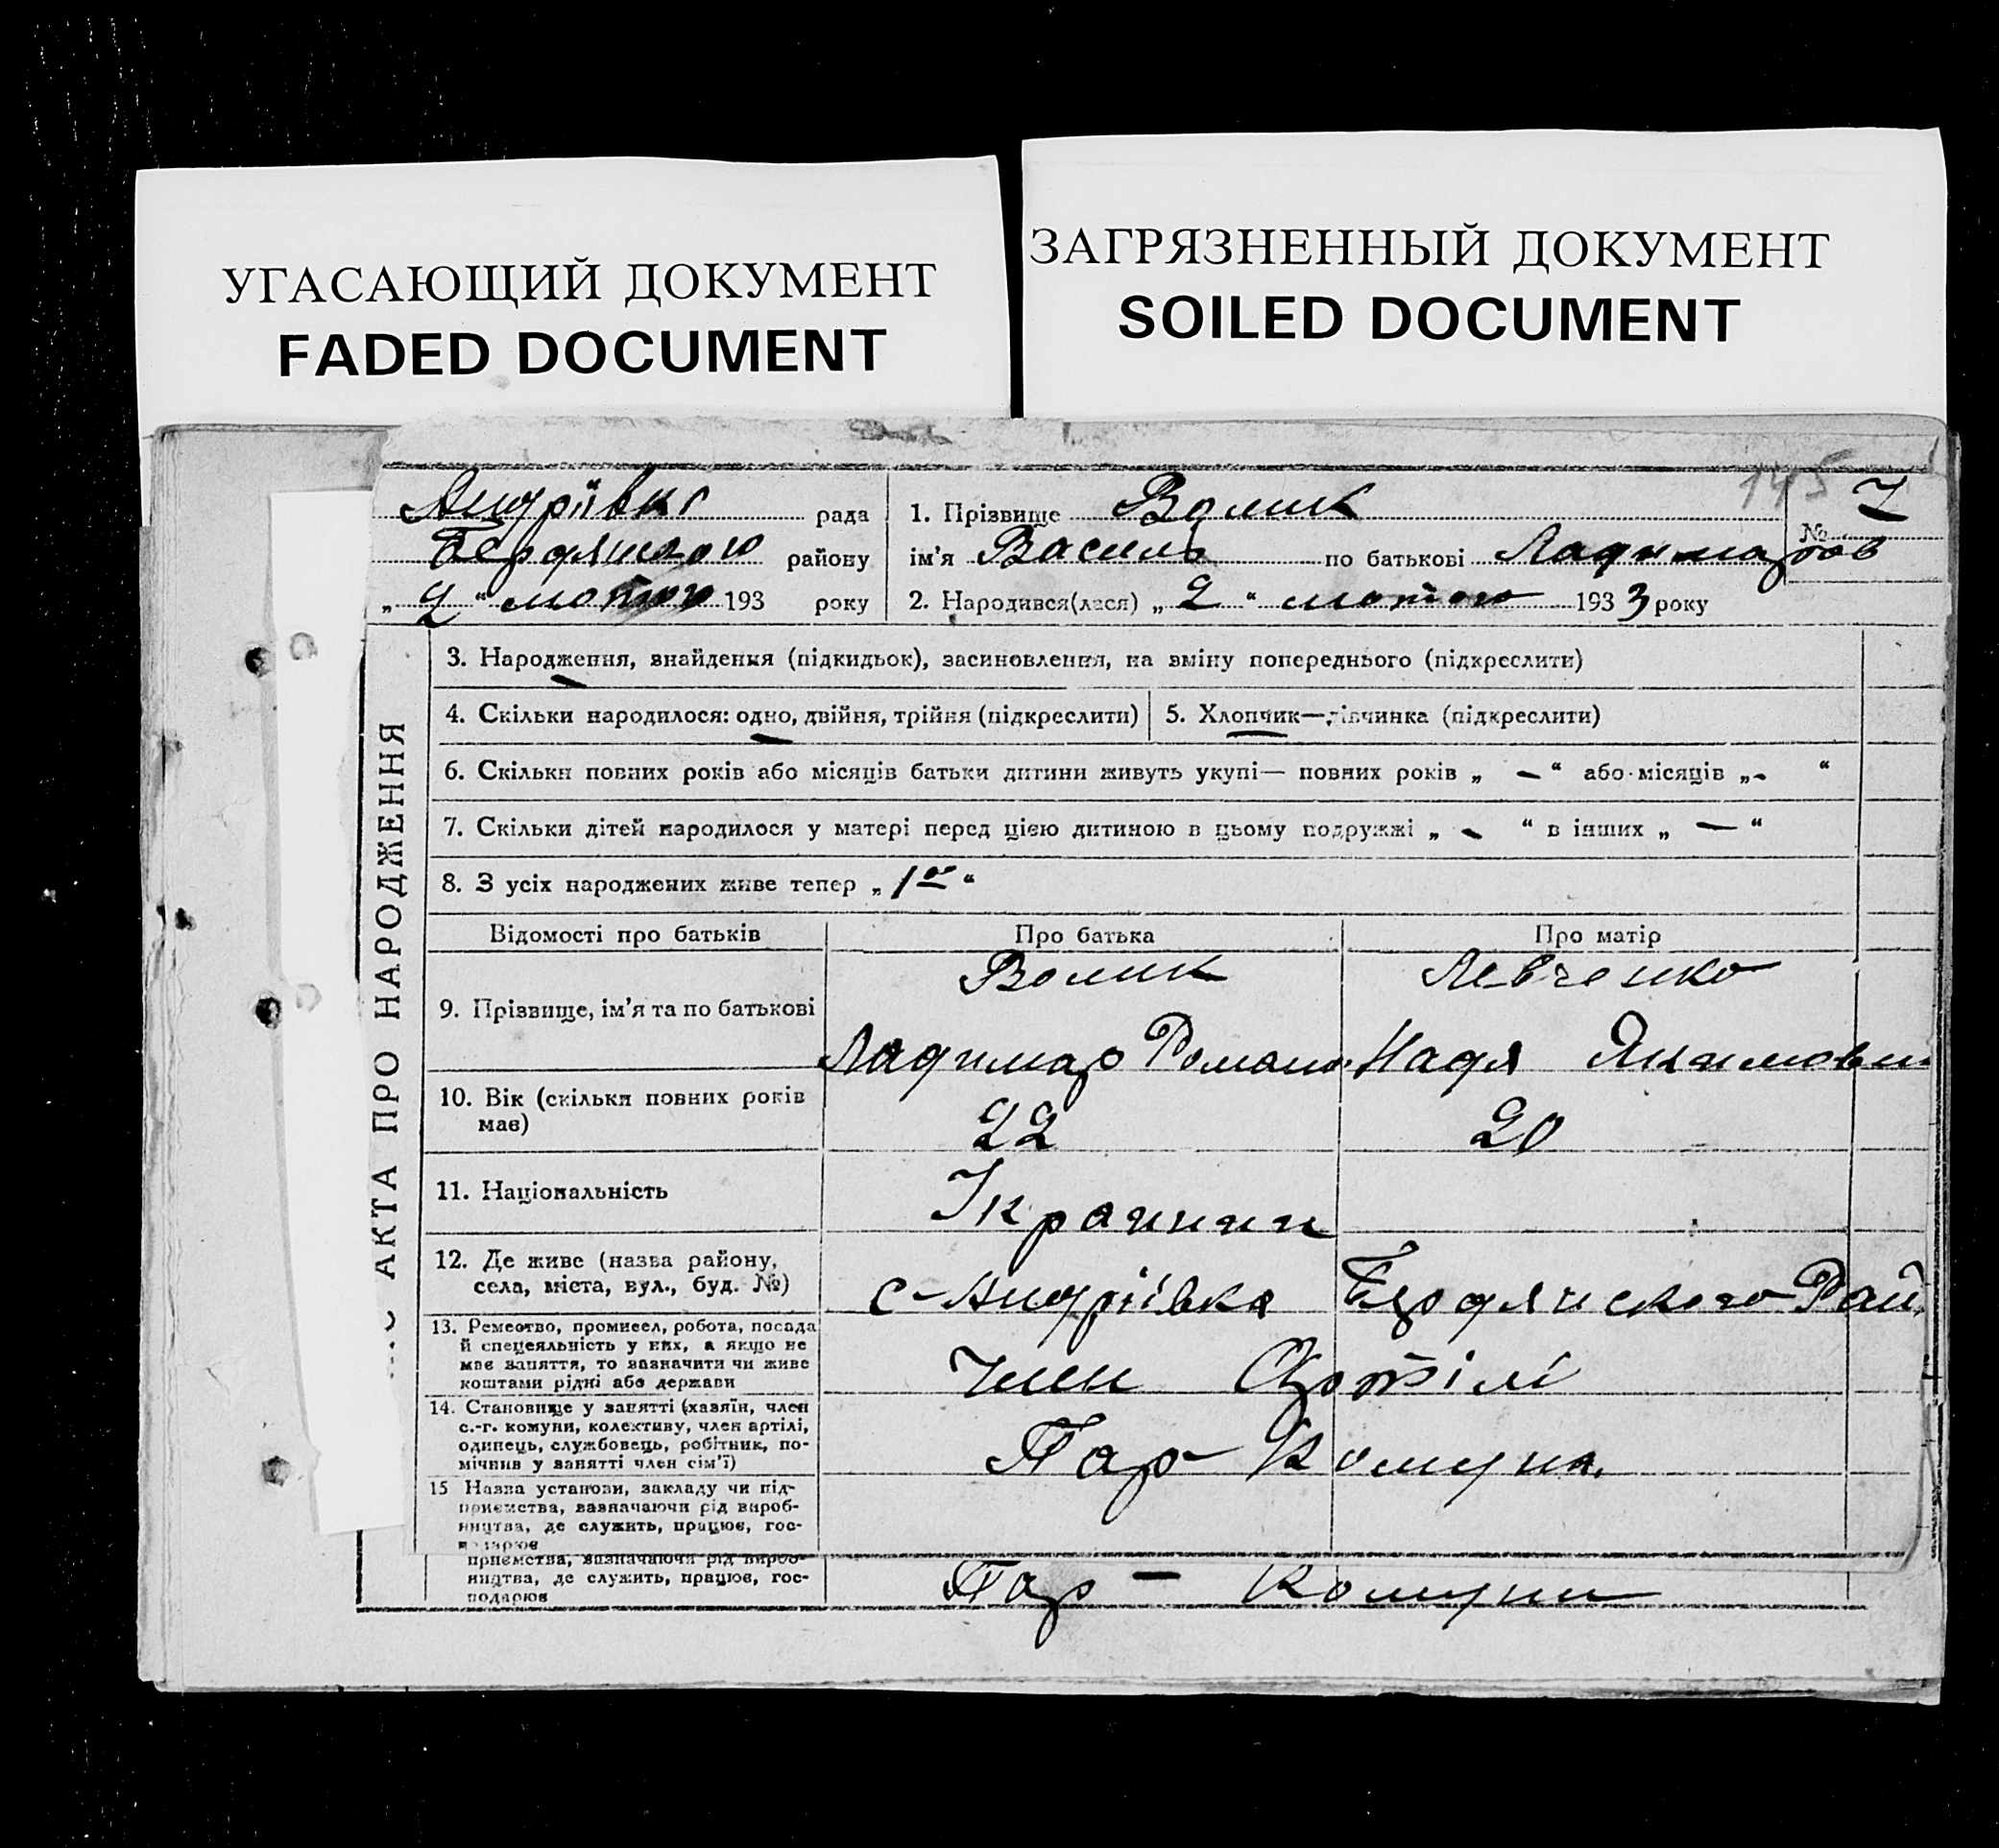 УГАСАЮЩИЙ ДОКУМЕНТ
FADED DOCUMENT
ЗАГРЯЗНЕННЫЙ ДОКУМЕНТ
SOILED DOCUMENT
145
Андріівка рада
району
„ 2 “ лютого 193 року
1. Прізвище Волик
№ 7
ім’я Василь по батькові Ладимаров
2. Народився(лася) „ 2 “ лютого 1933 року
АКТА ПРО НАРОДЖЕННЯ
3. Народження, знайдення (підкидьок), засиновлення, на зміну попереднього (підкреслити)
4. Скільки народилося: одно, двійня, трійня (підкреслити) 5. Хлопчик—дівчинка (підкреслити)
6. Скільки повних років або місяців батьки дитини живуть укупі— повних років „ — “ або місяців „ - “
7. Скільки дітей народилося у матері перед цією дитиною в цьому подружжі „ - “ в інших „ — “
8. З усіх народжених живе теперь „ 1 “
Відомості про батьків Про батька Про матір
9. Прізвище, ім’я та по батькові
Волик Левченко
Ладимар Романо Надя Якимовн
10. Вік (скільки повних років
має)
22 20
11. Національність
Україния
12. Де живе (назва району,
села, міста, вул., буд. №)
с-Андріівка Бердянского Рай.
13. Ремество, промисел, робота, посада
й спецеяльність у них, а якщо не
має заняття, то зазначити чи живе
коштами рідні або держави
Член Артілі
14. Становище у занятті (хазяїн, член
с.-г. комуни, колективу, член артілі,
одинець, службовець, робітник, по-
мічнив у занятті член сім’ї)
Пар- Комуна.
15 Назва установи, закладу чи під-
приємства, вазначаючи рід вироб-
ництва, де служить, працює, гос-
подарює
приємства, вазначаючи рід вироб-
ництва, де служить, працює, гос-
подарює
Пар — Комуни